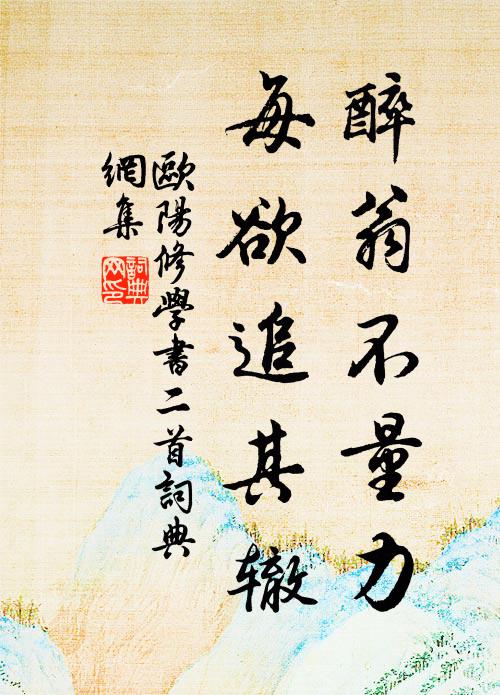 醉翁不量力
每欲追其辙
歐陽修學書二首詞典
網集
詞典網印